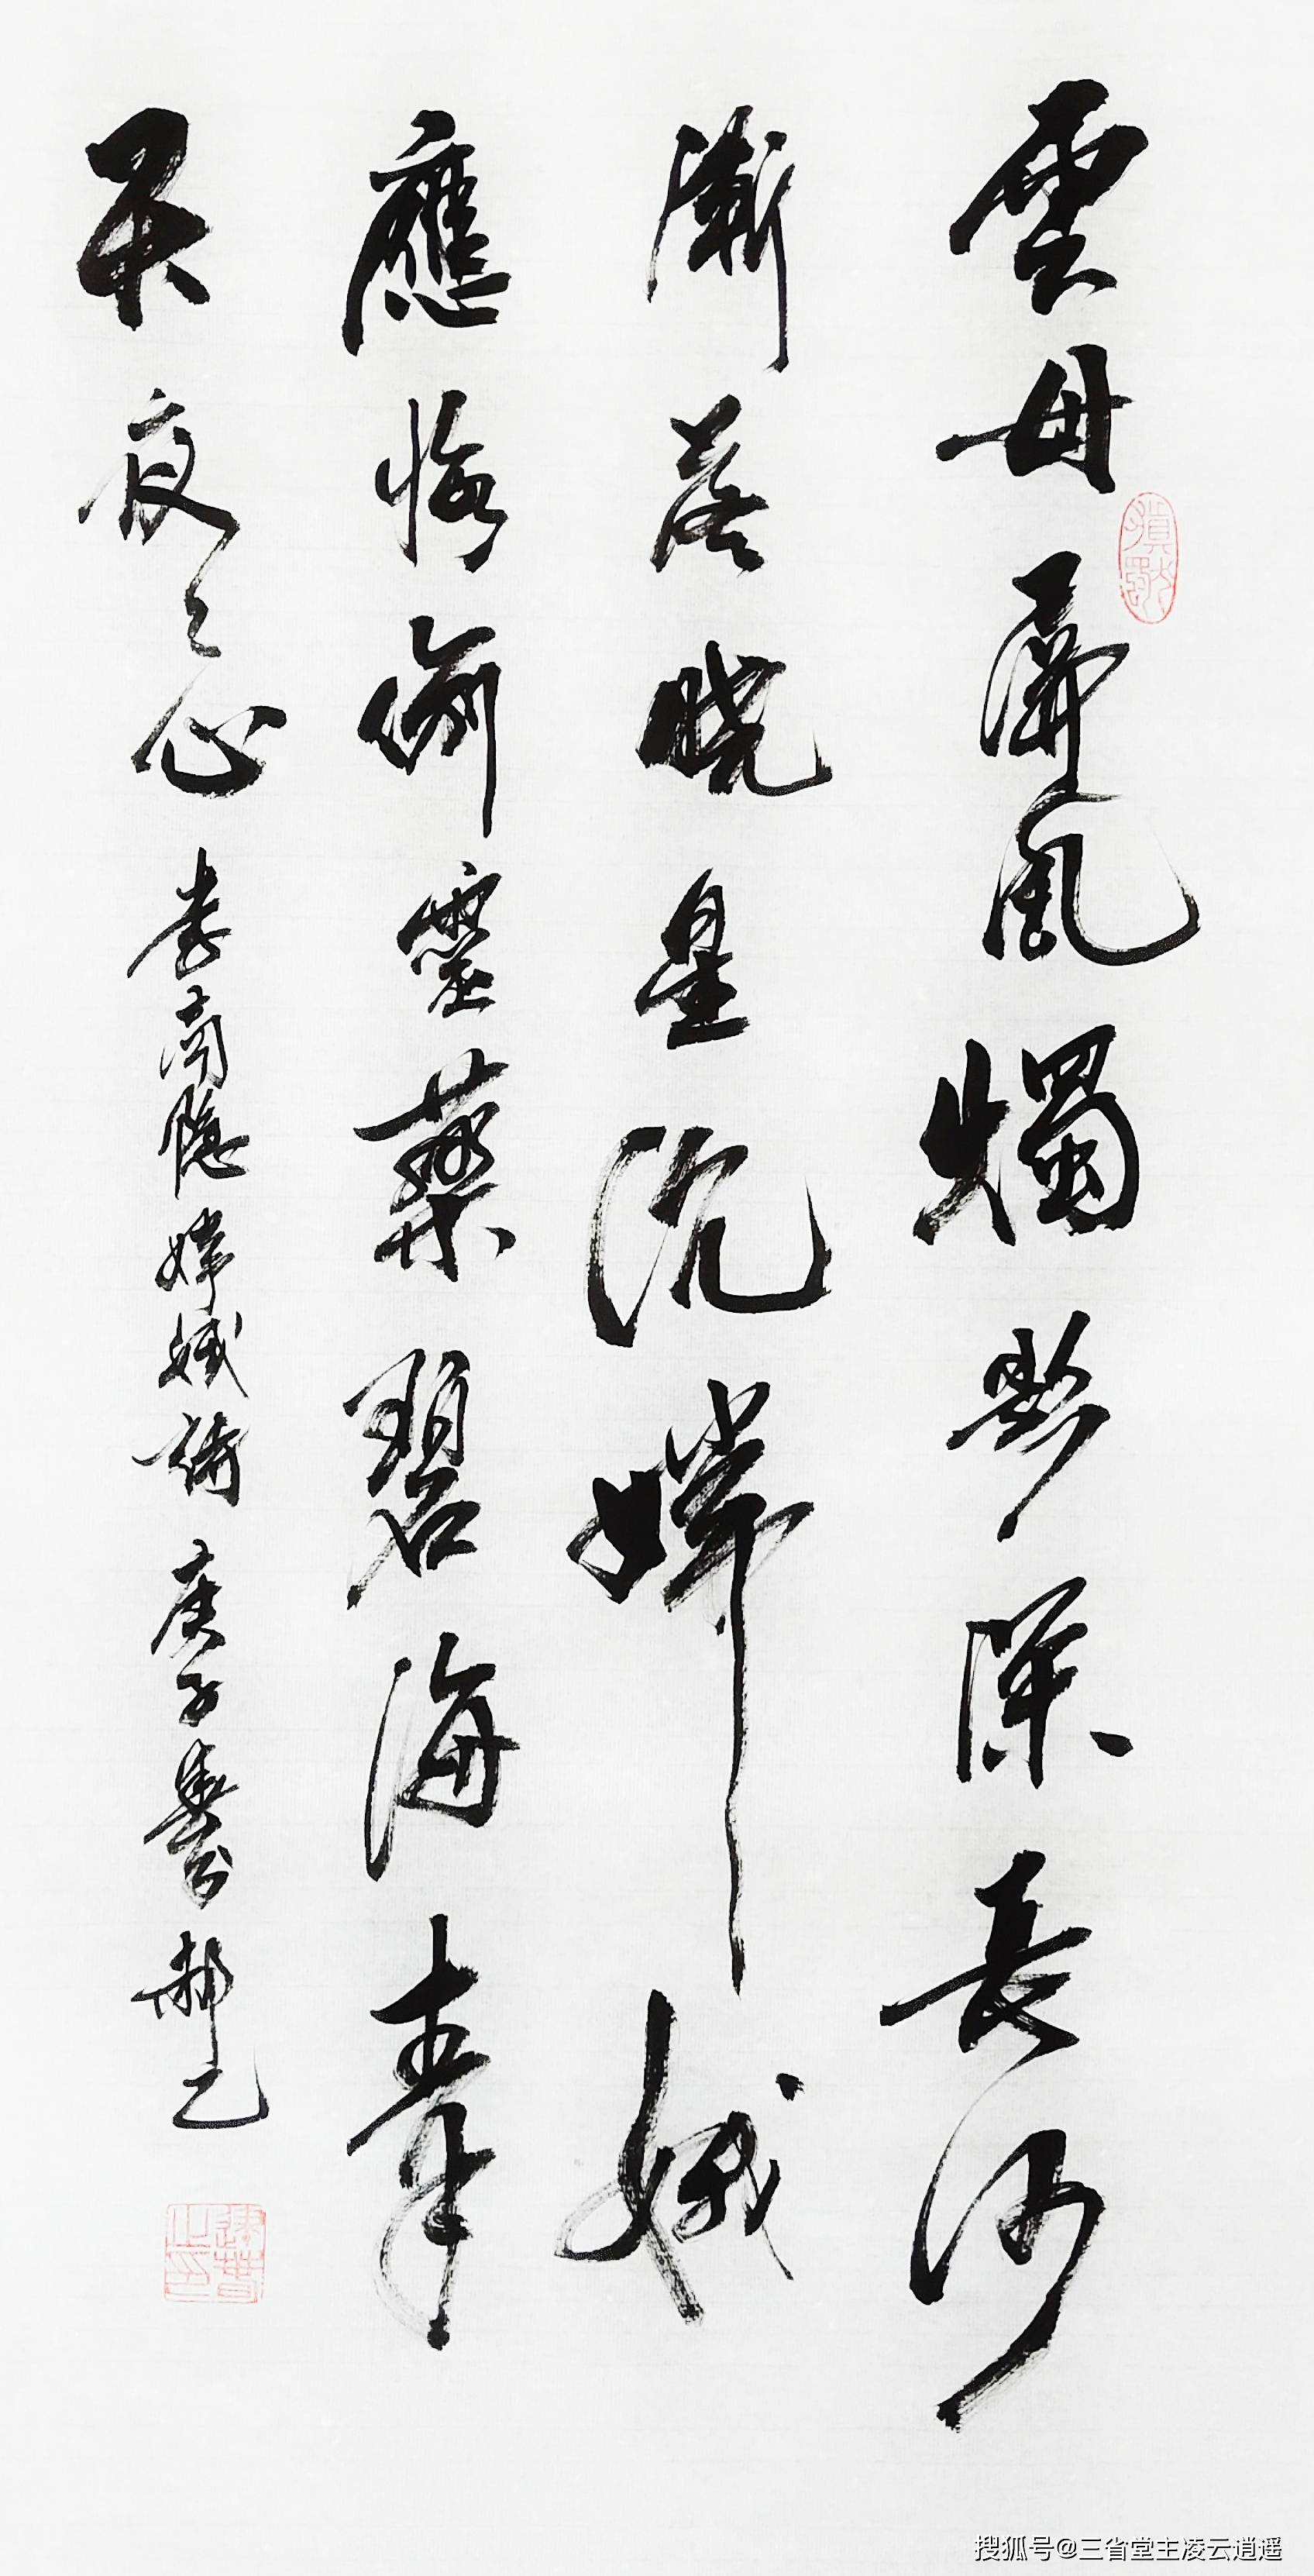 雲母屏風燭影深長河
漸落曉星沉嫦娥
應悔偷靈藥碧海青
天夜〻心 李商隱嫦娥詩 庚子 郝乙
搜狐号@三省堂主凌云逍遥